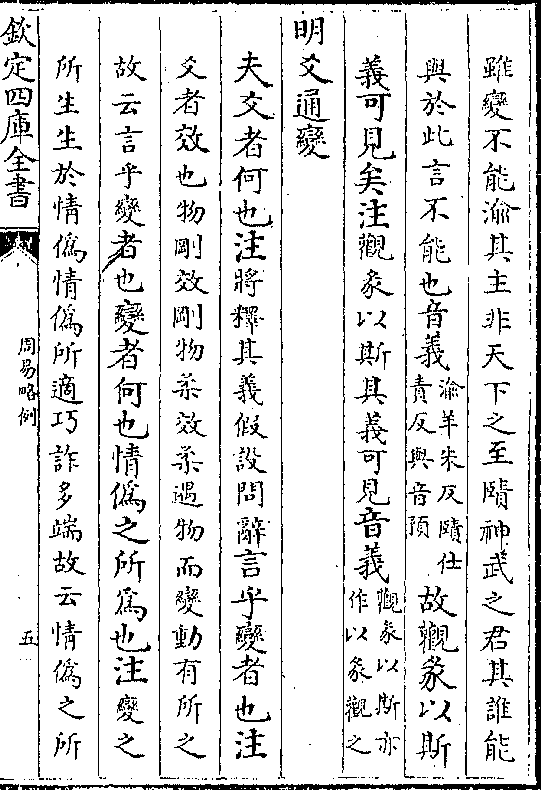 雖變不能渝其主非天下之至賾神武之君其誰能
與於此言不能也音義渝羊朱反賾仕責反與音預故觀象以斯
義可見矣注觀彖以斯其義可見音義觀彖以斯亦作以彖觀之
明爻通變
夫爻者何也注將釋其義假設問辭言乎變者也注
爻者效也物剛效剛物柔效柔遇物而變動有所之
故云言乎變者也變者何也情偽之所為也注變之
所生生於情偽情偽所適巧詐多端故云情偽之所
欽定四庫全書
周易略例
五